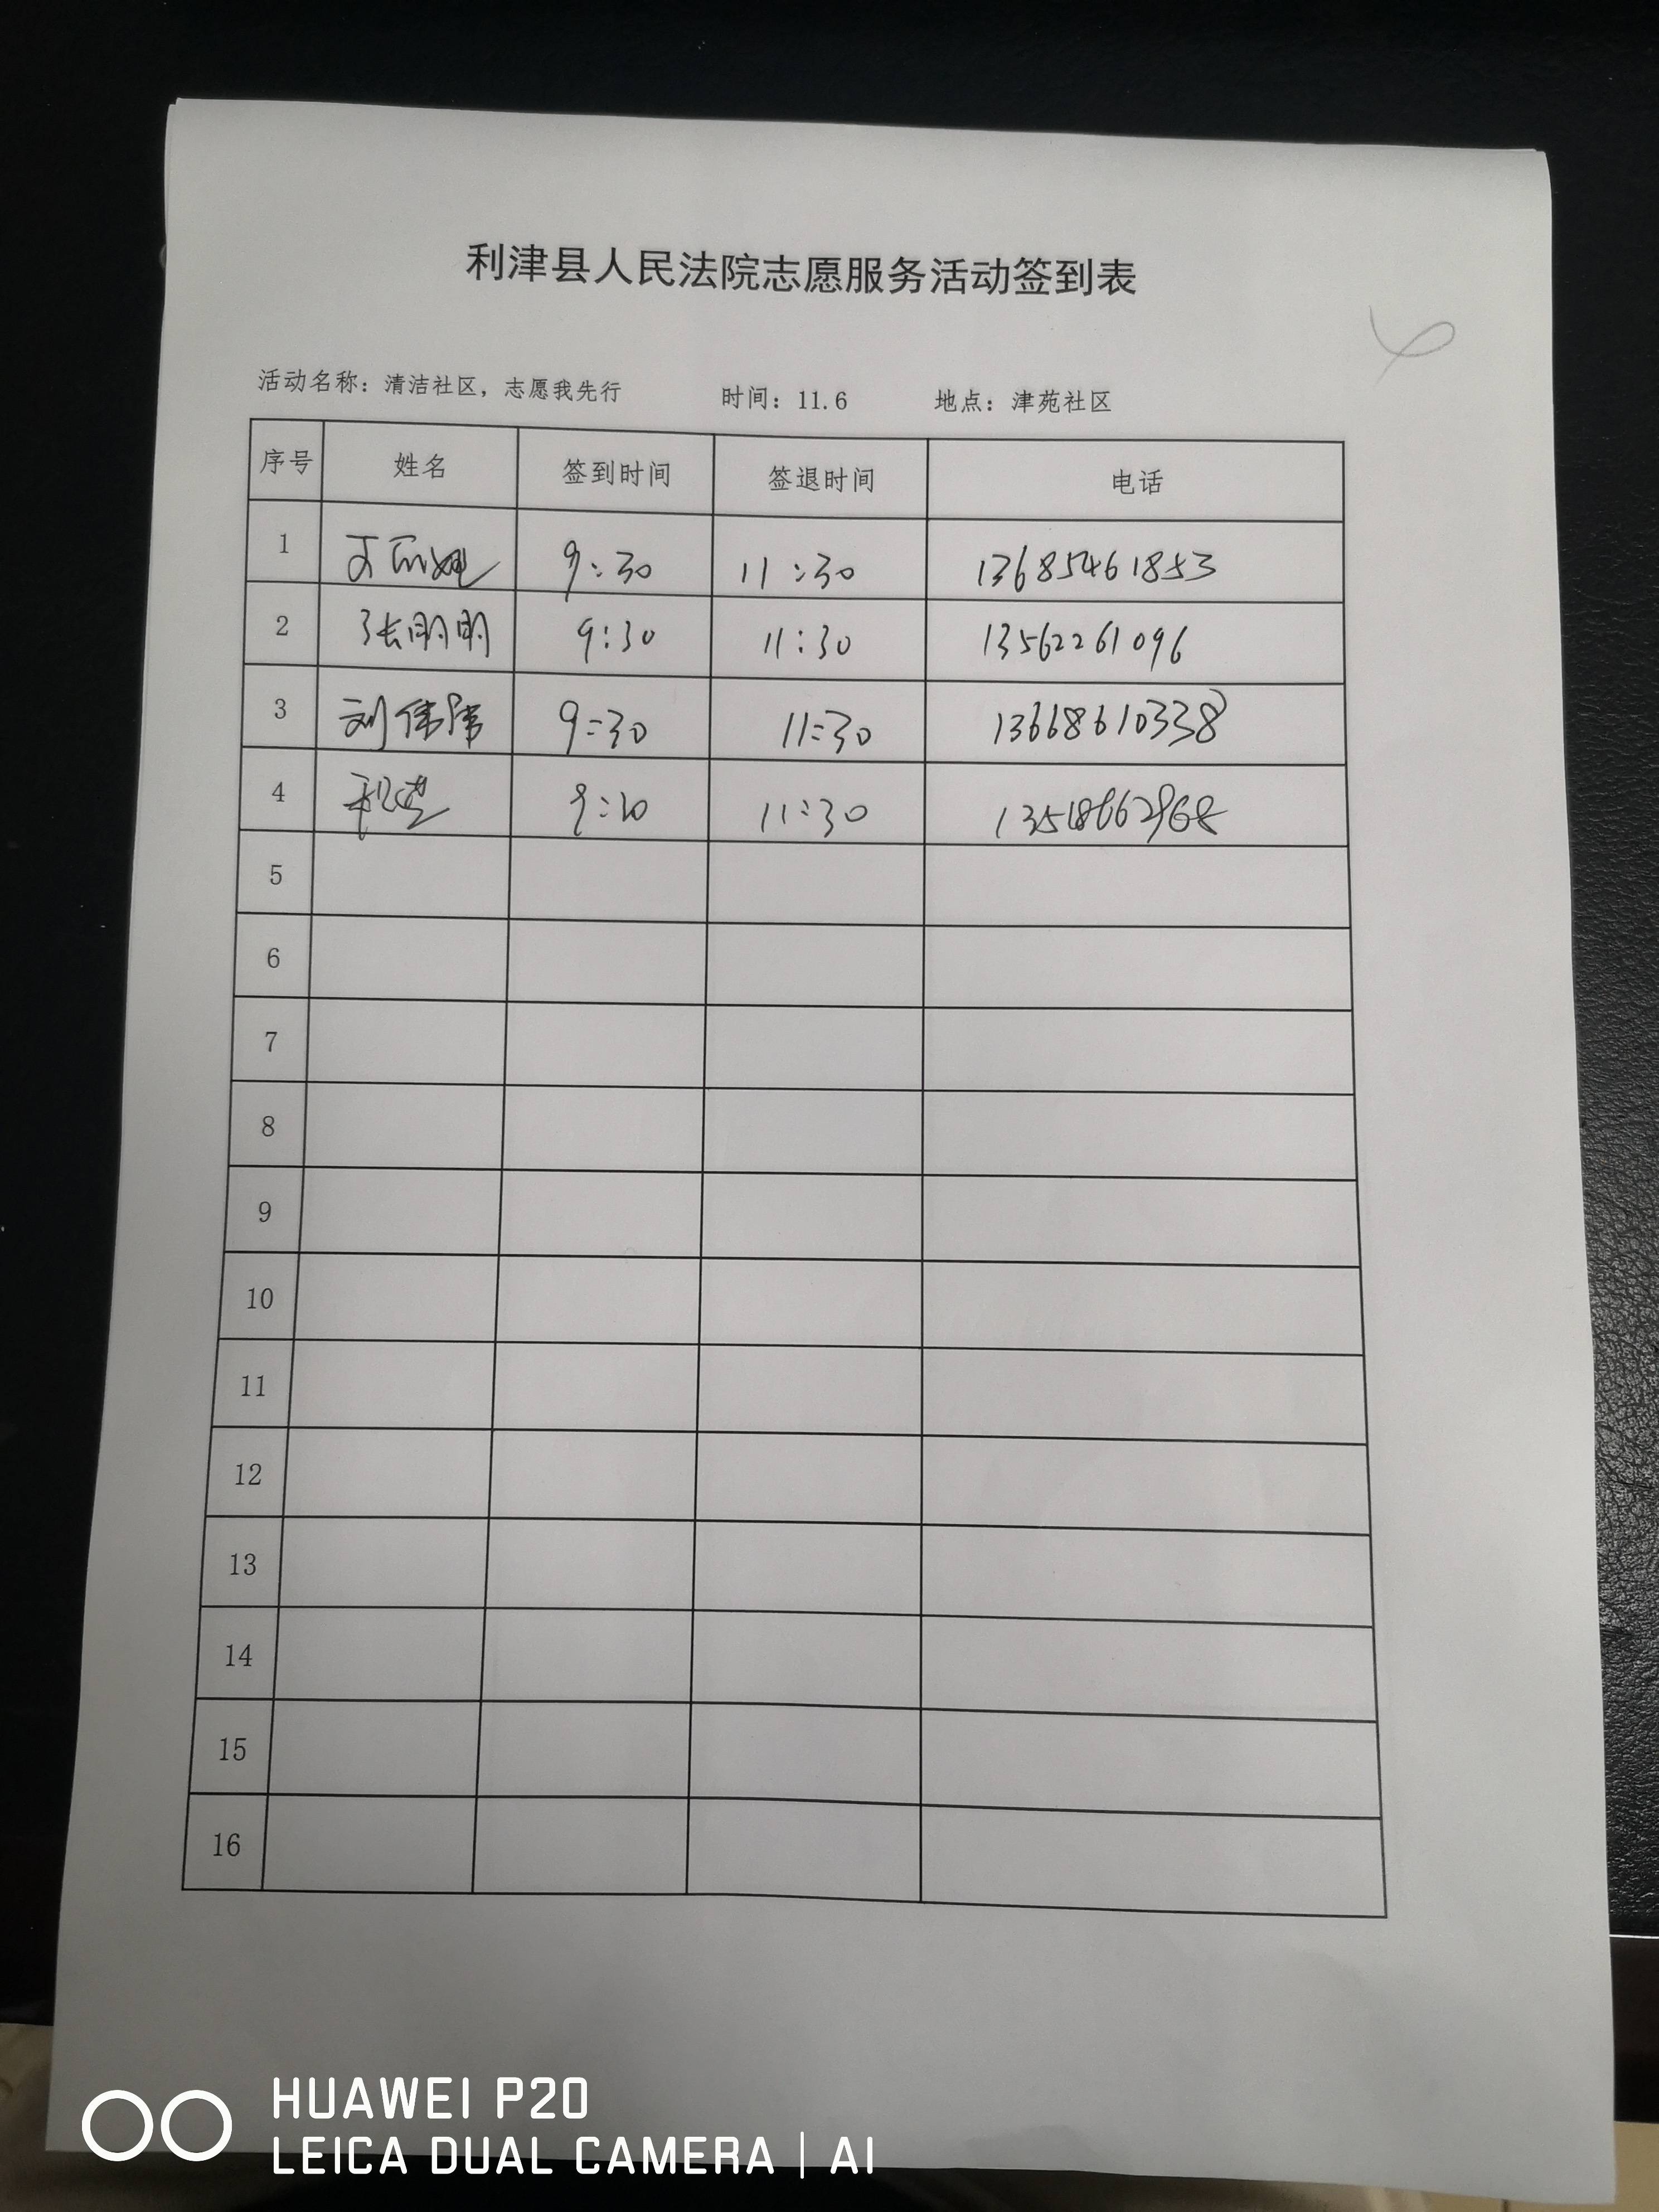 利津县人民法院志愿服务活动签到表
活动名称：清洁社区，志愿我先行 时间：11.6 地点：津苑社区
序号 姓名 签到时间 签退时间 电话
1 9:30 11:30 13685461853
2 张明明 9:30 11:30 13562261096
3 刘伟伟 9:30 11:30 13668610338
4 11:30
5
6
7
8
9
10
11
12
13
14
15
16
HUAWEI P20
LEICA DUAL CAMERA | AI